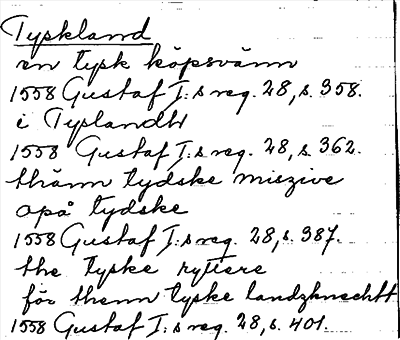 Tyskland
en tysk köpsvänn
1558 Gustaf I:s reg. 28, s. 358.
i Tyslandh
1558 Gustaf I:s reg. 28, s. 362.
thänn tydske miszive
opå tydske
1558 Gustaf I:s reg. 28, s. 387.
the tyske ryttere
för thenn tyske landzknechtt
1558 Gustaf I:s reg. 28, s. 401.